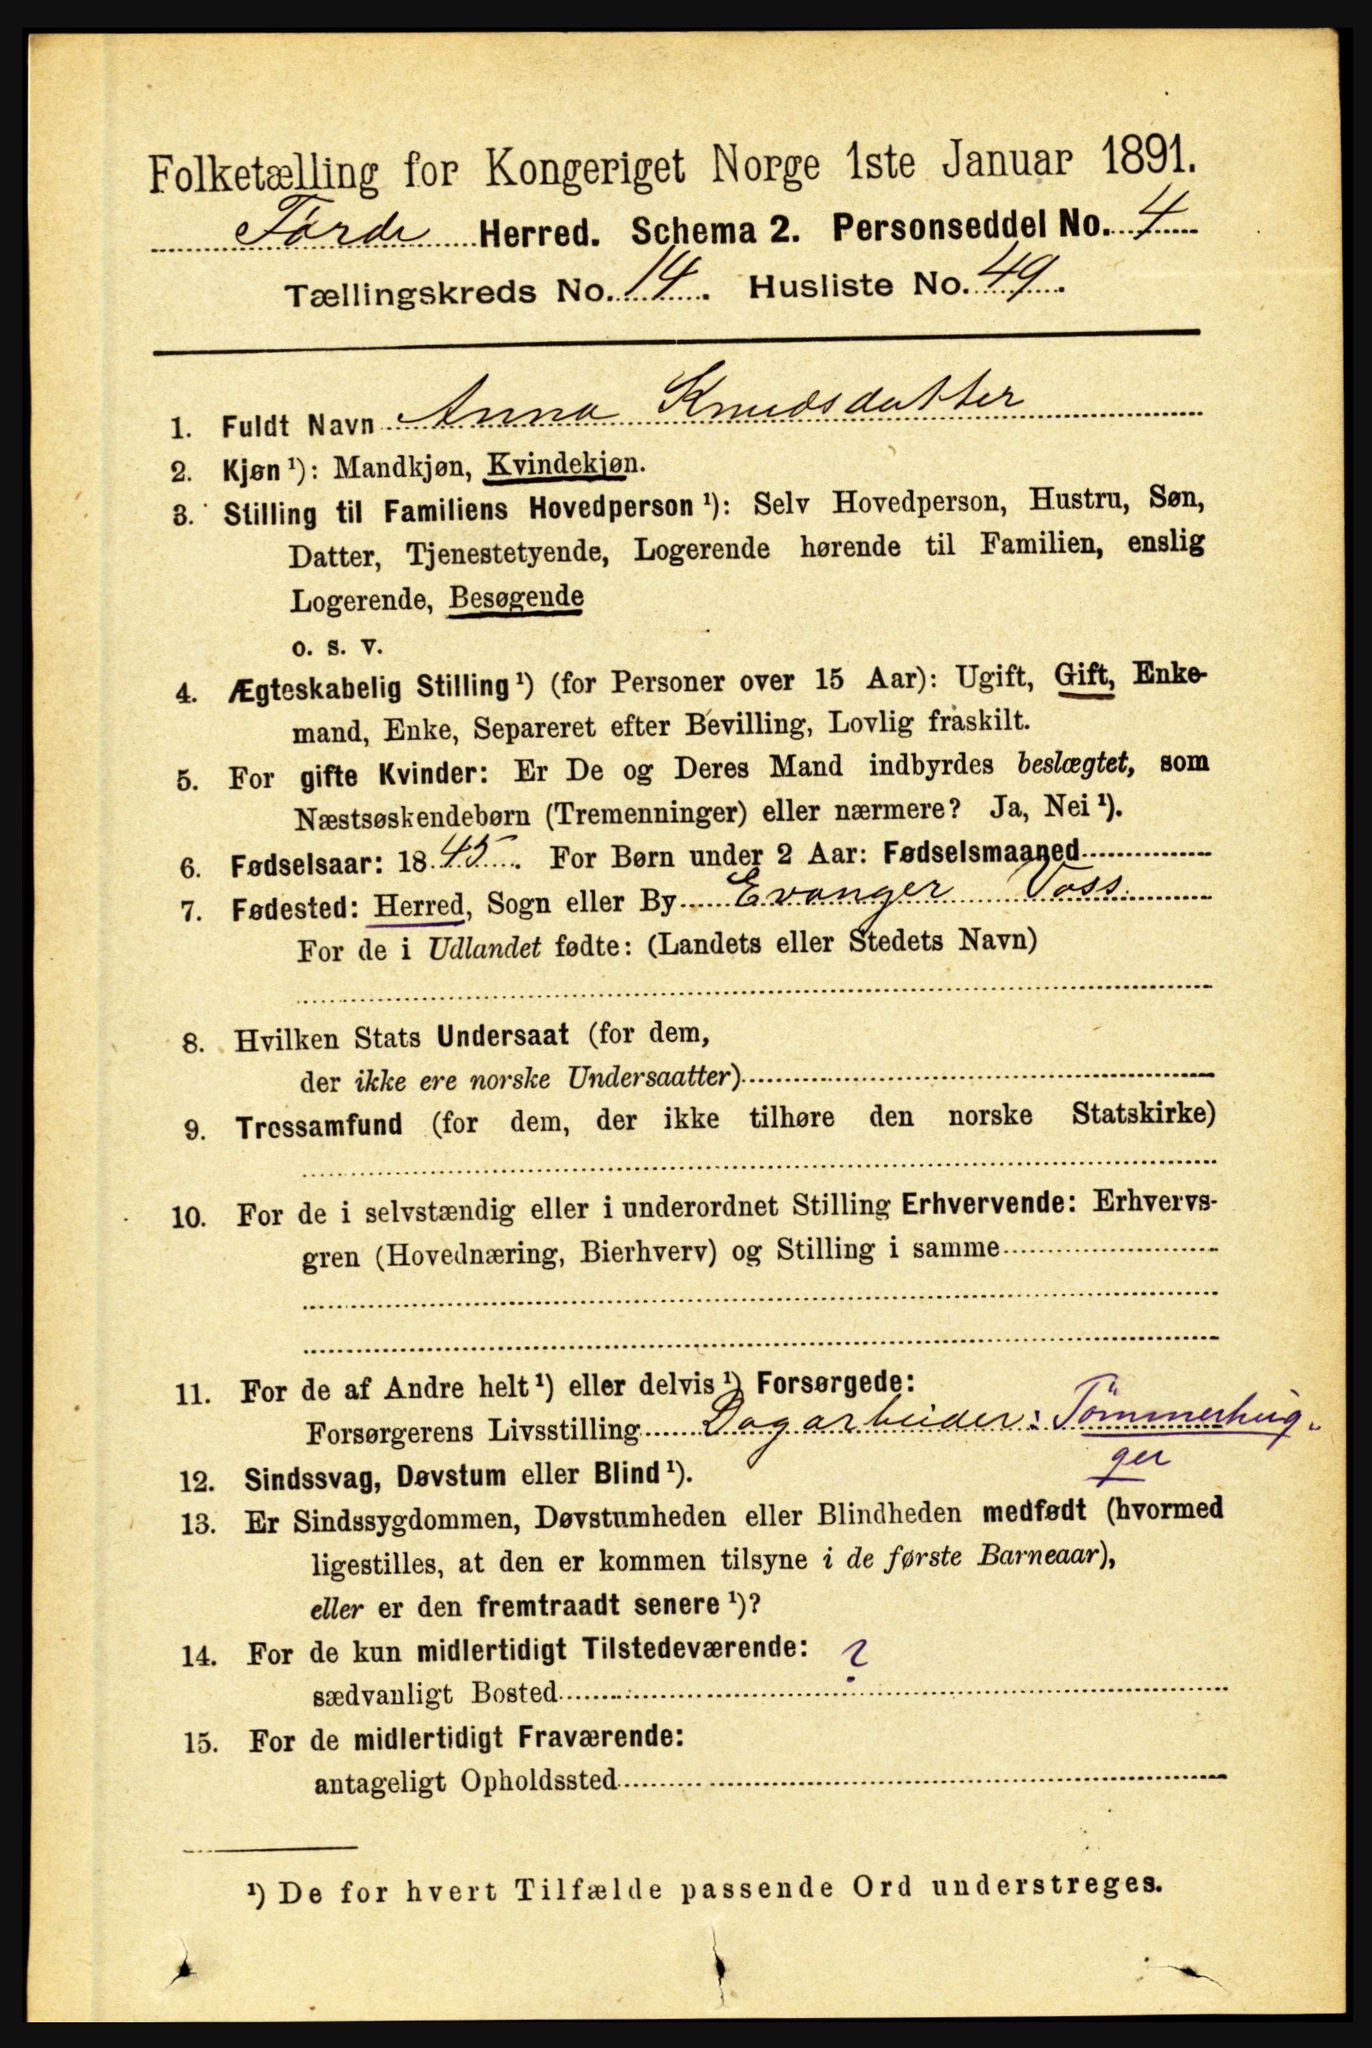 Folketælling for Kongeriget Norge 1ste Januar 1891.
Førde Herred. Schema 2. Personseddel No. 4
Tællingskreds No. 14. Husliste No. 49.
1. Fuldt Navn Anna Knudsdatter
2. Kjøn ¹): Mandkjøn, Kvindekjøn.
3. Stilling til Familiens Hovedperson ¹): Selv Hovedperson, Hustru, Søn,
Datter, Tjenestetyende, Logerende hørende til Familien, enslig
Logerende, Besøgende
o. s. v.
4. Ægteskabelig Stilling ¹) (for Personer over 15 Aar): Ugift, Gift, Enke-
mand, Enke, Separeret efter Bevilling, Lovlig fraskilt.
5. For gifte Kvinder: Er De og Deres Mand indbyrdes beslægtet, som
Næstsøskendebørn (Tremenninger) eller nærmere? Ja, Nei ¹).
6. Fødselsaar: 1845. For Børn under 2 Aar: Fødselsmaaned
7. Fødested: Herred, Sogn eller By Evanger Voss.
For de i Udlandet fødte: (Landets eller Stedets Navn)
8. Hvilken Stats Undersaat (for dem,
der ikke ere norske Undersaatter)
9. Trossamfund (for dem, der ikke tilhøre den norske Statskirke)
10. For de i selvstændig eller i underordnet Stilling Erhvervende: Erhvervs-
gren (Hovednæring, Bierhverv) og Stilling i samme
11. For de af Andre helt ¹) eller delvis ¹) Forsørgede:
Forsørgerens Livsstilling Dagarbeider: Tømmerhug-
ger
12. Sindssvag, Døvstum eller Blind ¹).
13. Er Sindssygdommen, Døvstumheden eller Blindheden medfødt (hvormed
ligestilles, at den er kommen tilsyne i de første Barneaar),
eller er den fremtraadt senere ¹)?
14. For de kun midlertidigt Tilstedeværende: ?
sædvanligt Bosted
15. For de midlertidigt Fraværende:
antageligt Opholdssted
¹) De for hvert Tilfælde passende Ord understreges.